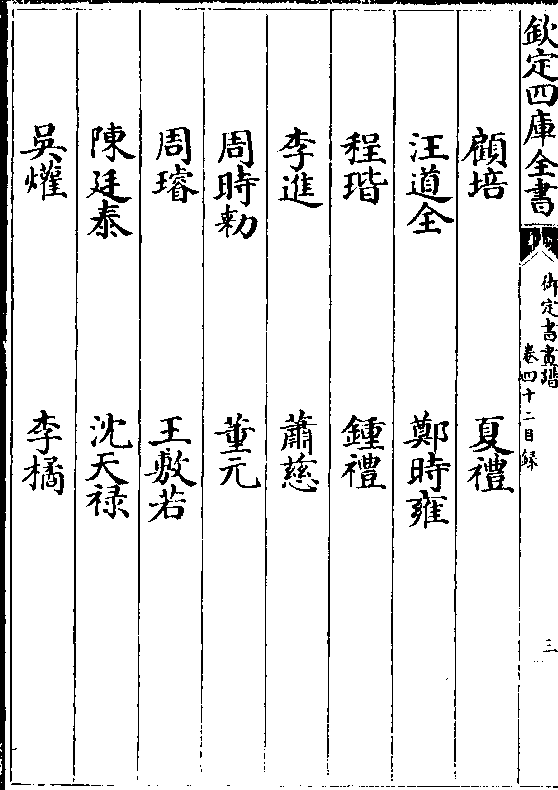 欽定四庫全書
御定書畫譜
卷四十二目録
三
顧培　夏禮
汪道全　鄭時雍
程瑎　鍾禮
李進　蕭慈
周時勅　董元
周璿　王敷若
陳廷泰　沈天禄
吳爟　李橘